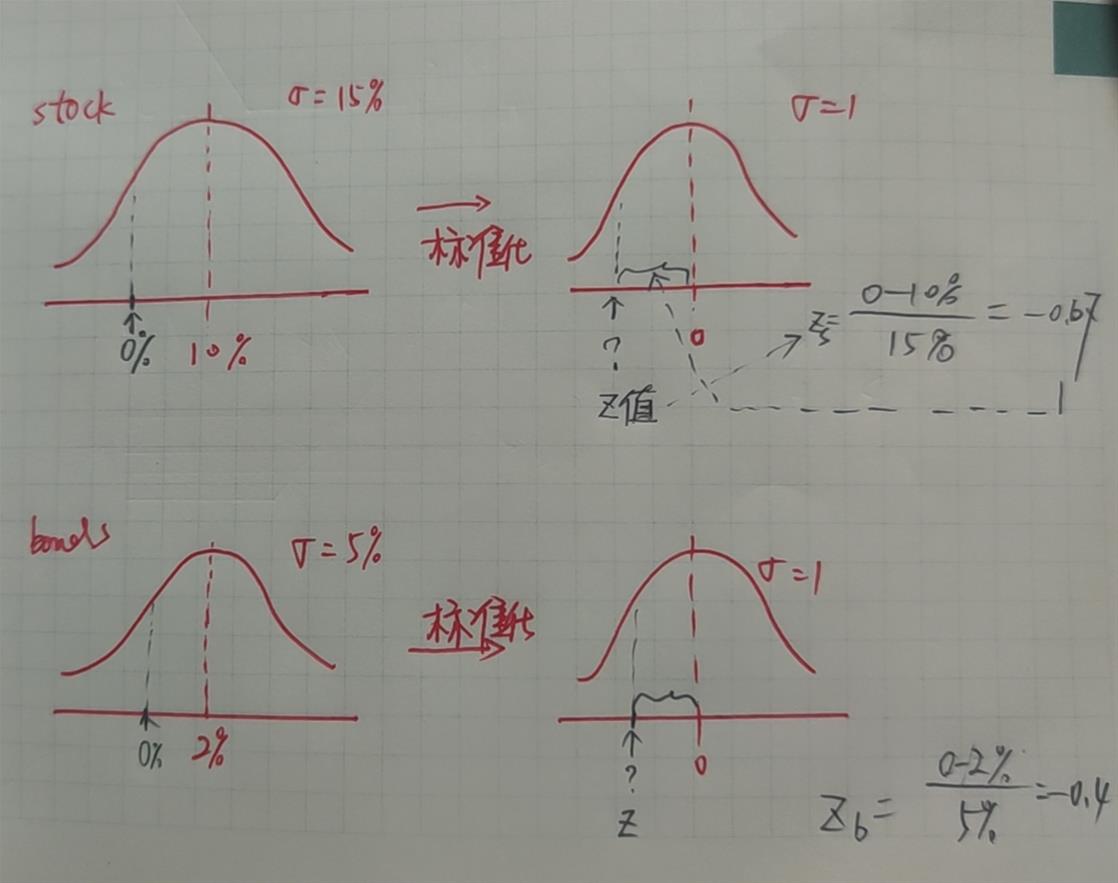 stock
σ=15%
σ=1
标准化
0%
10%
?
0
Z值
Zs= 0-10% / 15% = -0.67
bonds
σ=5%
σ=1
标准化
0%
2%
?
0
Z
Zb= 0-2% / 5% =-0.4